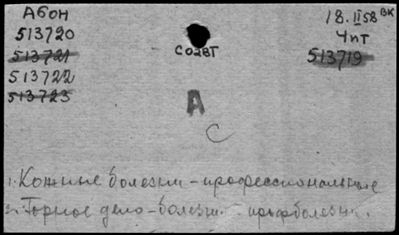 Абон
513720
513721
513722
513723
СОАВТ
А
С
18.II58 ВК
Чпт
513719
1. Кожные болезни – профессиональные
2. Горное дело – болезни – профболезни.